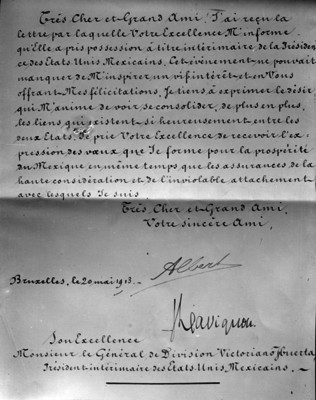 Très Cher et Grand Ami! J'ai reçu la
lettre par laquelle Votre Excellence M'informe
qu'Elle a pris possession à titre intérimaire de la Présiden-
ce des Etats Unis Mexicains. Cet événement ne pouvait
manquer de M'inspirer un vif intérêt et en Vous
offrant Mes félicitations, Je tiens à exprimer le désir
qui M'anime de voir se consolider, de plus en plus,
les liens qui existent si heureusement entre les
deux Etats. Je prie Votre Excellence de recevoir l'ex-
pression des vœux que Je forme pour la prospérité
du Mexique en même temps que les assurances de la
haute considération et de l'inviolable attachement
avec lesquels Je suis
Très Cher et Grand Ami,
Votre sincère Ami,
Albert
Bruxelles, le 20 mai 1913.
Davignon
Son Excellence
Monsieur le Général de Division Victoriano Huerta
Président intérimaire des Etats Unis Mexicains.